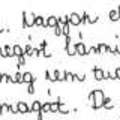 . Nagyon el
egért bármi
még sem tud
magát. De